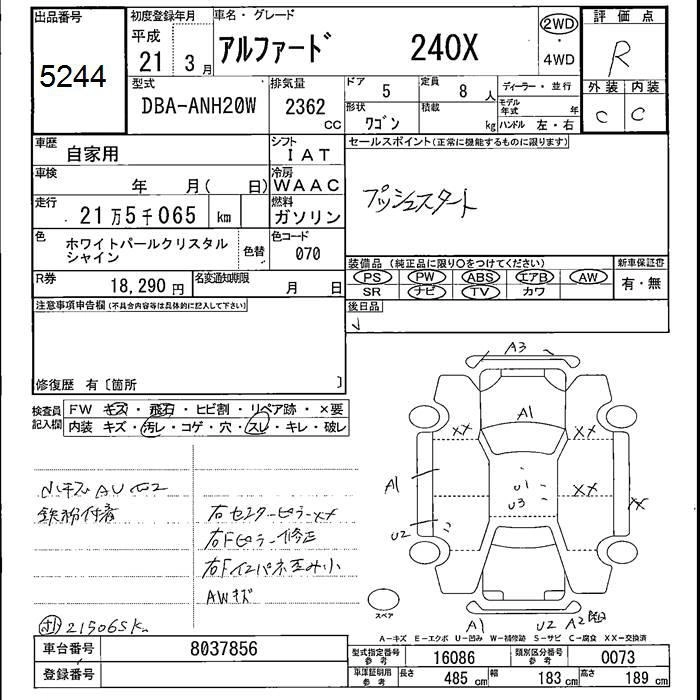 出品番号
5244
初度登録年月
平成
21 3月
車名・グレード
アルファード 240X
2WD
・
4WD
評価点
R
外装 内装
C C
型式
DBA-ANH20W
排気量
2362
CC
ドア
5
定員
8人
形状
ワゴン
積載
kg
ディーラー・並行
モデル年式 年
ハンドル 左・右
車歴
自家用
シフト
IAT
車検
年 月( 日)
冷房
WAAC
走行
21万5千065 km
燃料
ガソリン
色
ホワイトパールクリスタル
シャイン
色替
色コード
070
R券
18,290円
名変通知期限
月 日
セールスポイント(正常に機能するものに限ります)
プッシュスタート
装備品(純正品に限り○をつけてください)
PS PW ABS エアB AW
SR ナビ TV カワ
新車保証書
有・無
後日品
注意事項申告欄(不具合内容等は具体的に記入して下さい)
修復歴 有〔箇所 〕
検査員
記入欄
FW キズ・飛石・ヒビ割・リペア跡・×要
内装 キズ・汚レ・コゲ・穴・スレ・キレ・破レ
小キズ AU
鉄粉付着
右センターピラーXX
右Fピラー修正
右Fインパネ歪み小
AWキズ
215065K
A3
A1
XX XX
A1
U1
U3
XX XX
XX
U2
スペア
A1 U2 A2
A−キズ E−エクボ U−凹み W−補修跡 S−サビ C−腐食 XX−交換済
車台番号 8037856
登録番号
型式指定番号
参考
16086
類別区分番号
参考
0073
車庫証明用
参考
長さ 485cm 幅 183cm 高さ 189cm